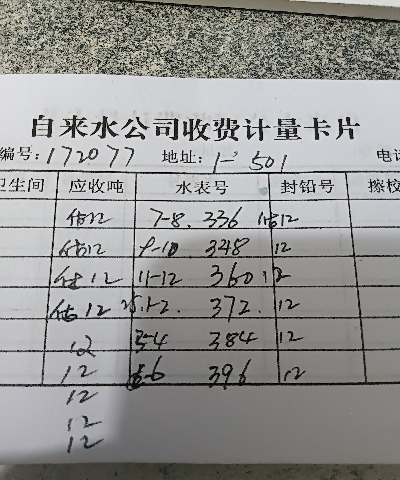 自来水公司收费计量卡片
编号:172077 地址:1- 501 电话
卫生间 应收吨 水表号 封铅号 擦校
估12 7-8. 336 估12
估12 9-10 348 12
估12 11-12 360 12
估12 25.1-2. 372. 12
12 3-4 384 12
12 5-6 396 12
12
12
12